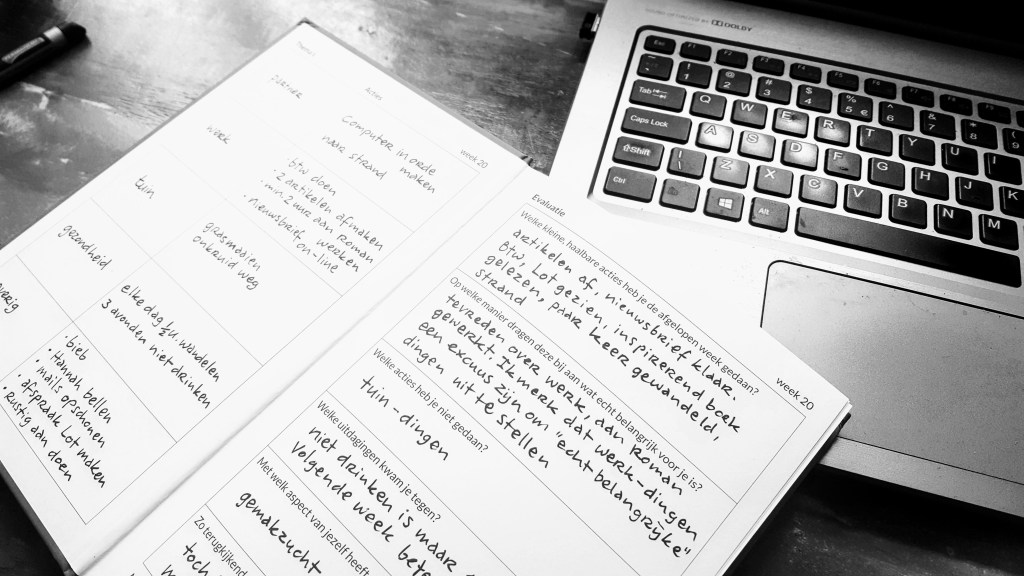 Acties
week 20
Computer in orde maken
naar strand
werk
· btw doen
· 2 artikelen afmaken
· min. 2 uur aan roman werken
· nieuwsbrief on-line
tuin
grasmaaien
onkruid weg
gezondheid
elke dag ½ u. wandelen
3 avonden niet drinken
· bieb
· Hannah bellen
· mails opschonen
· afspraak Lot maken
· Rustig aan doen
Evaluatie
week 20
Welke kleine, haalbare acties heb je de afgelopen week gedaan?
artikelen af, nieuwsbrief klaar.
btw, Lot gezien, inspirerend boek
gelezen, paar keer gewandeld,
strand
Op welke manier dragen deze bij aan wat echt belangrijk voor je is?
tevreden over werk, aan roman
gewerkt. Ik merk dat werk-dingen
een excuus zijn om "echt belangrijke"
dingen uit te stellen
Welke acties heb je niet gedaan?
tuin-dingen
Welke uitdagingen kwam je tegen?
niet drinken is maar
Volgende week
Met welk aspect van jezelf heeft
gemakzucht
Zo terugkijkend
toch
DOLBY
Esc
1 @ 2 # 3 $ 4 % 5 € ^ 6 & 7 * 8 ( 9
Tab Q W E R T Y U I
Caps Lock A S D F G H J K
Shift | \ Z X C V B N M
Ctrl Alt